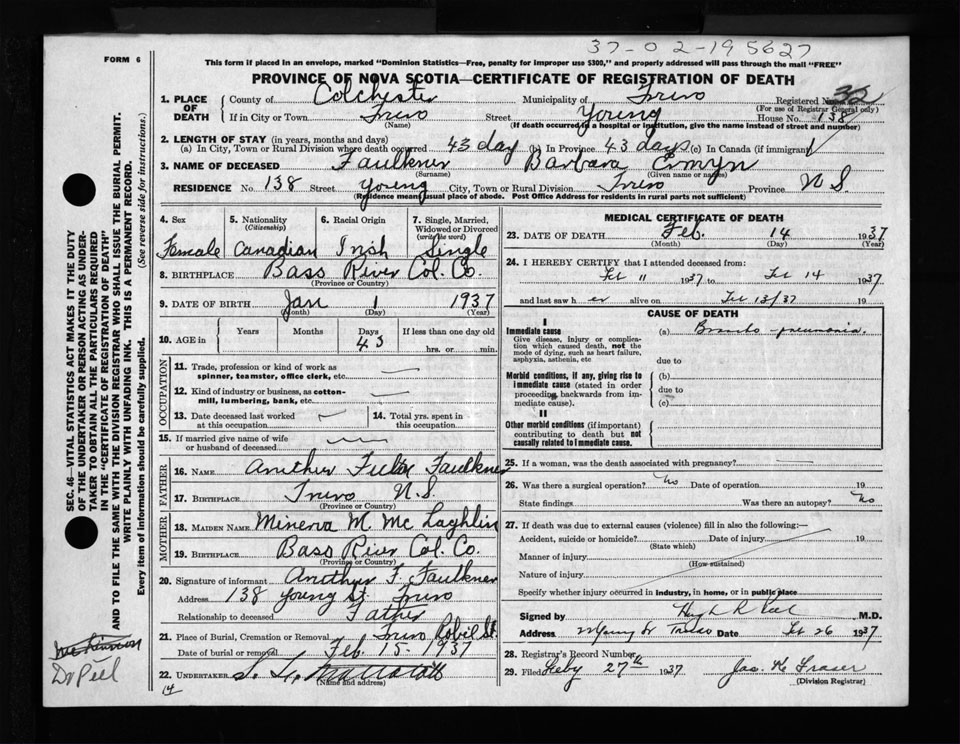 37-02-195627
FORM 6
This form if placed in an envelope, marked "Dominion Statistics—Free, penalty for improper use $300," and properly addressed will pass through the mail "FREE"
PROVINCE OF NOVA SCOTIA—CERTIFICATE OF REGISTRATION OF DEATH
1. PLACE OF DEATH County of Colchester Municipality of Truro Registered No.
(For use of Registrar General Only)
If in City or Town Truro Street Young House No. 138
(Name) (If death occurred in a hospital or institution, give the name instead of street and number)
2. LENGTH OF STAY (in years, months and days)
(a) In City, Town or Rural Division where death occurred 43 day (b) In Province 43 days (c) In Canada (if immigrant)
3. NAME OF DECEASED Faulkner Barbara
(Surname) (Given name or names)
RESIDENCE No. 138 Street Young City, Town or Rural Division Truro Province N S.
(Residence means usual place of abode. Post Office Address for residents in rural parts not sufficient)
4. Sex 5. Nationality 6. Racial Origin 7. Single, Married,
(Citizenship) Widowed or Divorced
(write the word)
Female Canadian Irish Single
8. BIRTHPLACE Bass River Col. Co.
(Province or Country)
9. DATE OF BIRTH Jan 1 1937
(Month) (Day) (Year)
10. AGE in Years Months Days If less than one day old
43 hrs. or min.
OCCUPATION
11. Trade, profession or kind of work as
spinner, teamster, office clerk, etc.
12. Kind of industry or business, as cotton-
mill, lumbering, bank, etc.
13. Date deceased last worked
at this occupation
14. Total yrs. spent in
this occupation
15. If married give name of wife
or husband of deceased
FATHER
16. NAME Faulkner
17. BIRTHPLACE Truro N.S.
(Province or Country)
MOTHER
18. MAIDEN NAME Minerva M Mc Laghlin
19. BIRTHPLACE Bass River Col. Co.
(Province or Country)
20. Signature of informant F. Faulkner
Address 138 Young St. Truro
Relationship to deceased Father
21. Place of Burial, Cremation or Removal Truro Robie St
Date of burial or removal Feb. 15- 1937
22. UNDERTAKER
(Name and address)
14
MEDICAL CERTIFICATE OF DEATH
23. DATE OF DEATH Feb. 14 1937
(Month) (Day) (Year)
24. I HEREBY CERTIFY that I attended deceased from:
Feb 11 1937 to Feb 14 1937
and last saw h er alive on Feb 13/37 19
CAUSE OF DEATH
I
Immediate cause
Give disease, injury or complica-
tion which caused death, not the
mode of dying, such as heart failure,
asphyxia, asthenia, etc
(a) Broncho-pneumonia.
due to
Morbid conditions, if any, giving rise to
immediate cause (stated in order
proceeding backwards from im-
mediate cause).
(b)
due to
(c)
II
Other morbid conditions (if important)
contributing to death but not
causally related to immediate cause.
25. If a woman, was the death associated with pregnancy?
26. Was there a surgical operation? No Date of operation 19
State findings Was there an autopsy? No
27. If death was due to external causes (violence) fill in also the following:—
Accident, suicide or homicide? Date of injury 19
(State which)
Manner of injury
(How sustained)
Nature of injury
Specify whether injury occurred in industry, in home, or in public place
Signed by Hugh R Peel M.D.
Address Truro Date Feb 26 1937
28. Registrar's Record Number
29. Filed Feby 27th 1937 Jas. K Fraser
(Division Registrar)
SEC. 46—VITAL STATISTICS ACT MAKES IT THE DUTY
OF THE UNDERTAKER OR PERSON ACTING AS UNDER-
TAKER TO OBTAIN ALL THE PARTICULARS REQUIRED
IN THE "CERTIFICATE OF REGISTRATION OF DEATH"
AND TO FILE THE SAME WITH THE DIVISION REGISTRAR WHO SHALL ISSUE THE BURIAL PERMIT.
WRITE PLAINLY WITH UNFADING INK. THIS IS A PERMANENT RECORD.
Every item of Information should be carefully supplied. (See reverse side for instructions.)
Dr Peel